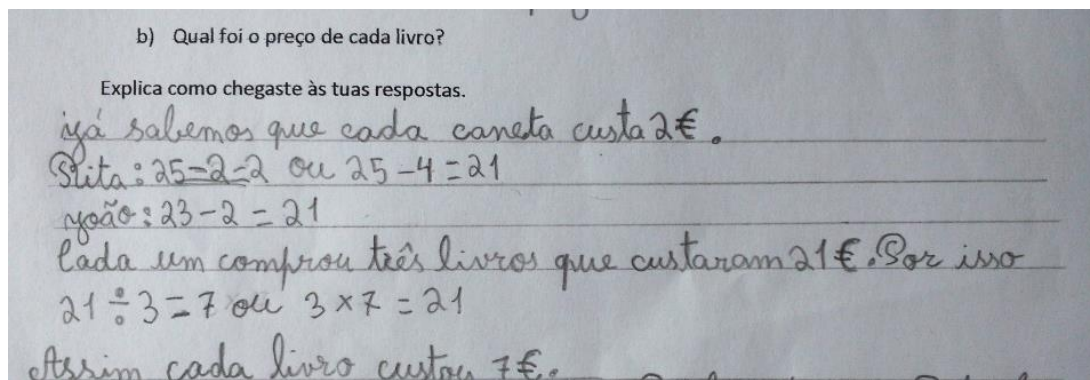 b) Qual foi o preço de cada livro?
Explica como chegaste às tuas respostas.
já sabemos que cada caneta custa 2€.
Rita: 25-2-2 ou 25-4=21
João: 23-2=21
Cada um comprou três livros que custaram 21€. Por isso
21÷3=7 ou 3×7=21
Assim cada livro custou 7€.